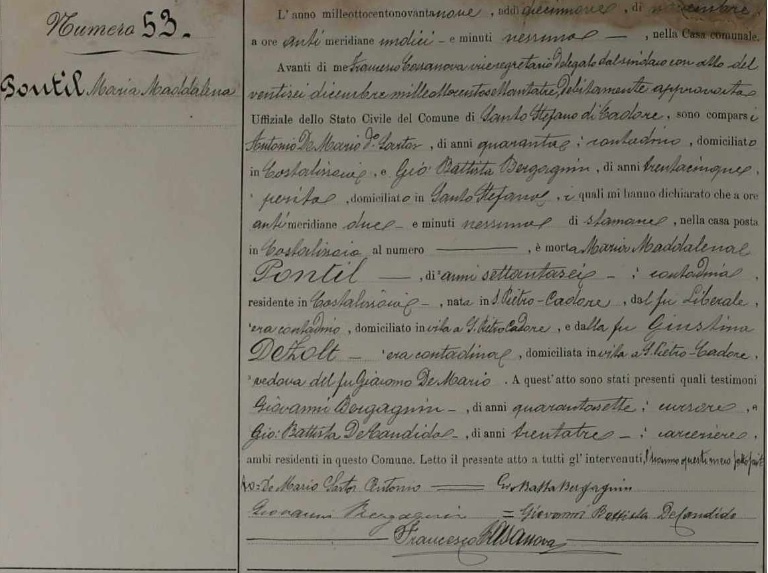 Numero 53.
Pontil Maria Maddalena
L'anno millottocentonovantanove, addì diecinove, di novembre,
a ore antimeridiane undici e minuti nessuno, nella Casa comunale.
Avanti di me Francesco Casanova vicesegretario delegato dal sindaco con atto del
ventisei dicembre milleottocentosettantatre, debitamente approvato
Uffiziale dello Stato Civile del Comune di Santo Stefano di Cadore, sono comparsi
Antonio De Mario do Sartor, di anni quaranta, contadino, domiciliato
in Costalissoio, e Gio Battista Bergagnin, di anni trentacinque,
perito, domiciliato in Santo Stefano, i quali mi hanno dichiarato che a ore
antimeridiane due e minuti nessuno di stamane, nella casa posta
in Costalissoio al numero ———, è morta Maria Maddalena
Pontil —, di anni settantasei - : contadina,
residente in Costalissoio -, nata in S. Pietro-Cadore, dal fu Liberale,
era contadino, domiciliato in vita a S. Pietro Cadore, e dalla fu Giustina
DeZolt — era contadina, domiciliata in vita a S. Pietro-Cadore,
vedova del fu Giacomo De Mario. A quest'atto sono stati presenti quali testimoni
Giovanni Bergagnin -, di anni quarantasette : cursore, e
Gio: Battista DeCandido -, di anni trentatre - : carceriere,
ambi residenti in questo Comune. Letto il presente atto a tutti gl'intervenuti, hanno questi meco
De Mario Sartor Antonio —— Gio Batta Bergagnin
Giovanni Bergagnin = Giovanni Battista DeCandido
Francesco Casanova